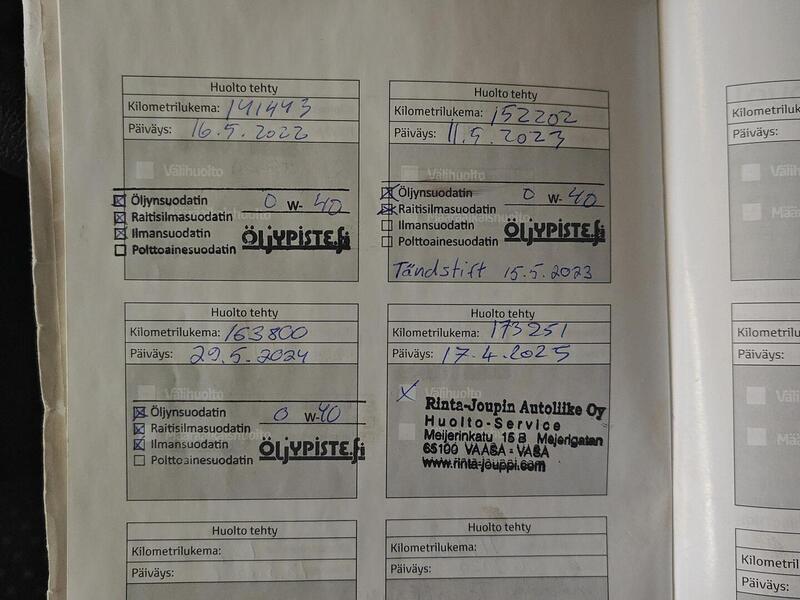 Huolto tehty
Kilometrilukema: 141443
Päiväys: 16.5.2022
Välihuolto
Öljynsuodatin 0 W- 40
Raitisilmasuodatin
Ilmansuodatin
Polttoainesuodatin
ÖLJYPISTE.fi
Huolto tehty
Kilometrilukema: 152202
Päiväys: 11.5.2023
Välihuolto
Öljynsuodatin 0 W- 40
Raitisilmasuodatin
Ilmansuodatin
Polttoainesuodatin
ÖLJYPISTE.fi
Tändstift 15.5.2023
Huolto tehty
Kilometrilukema: 163800
Päiväys: 29.5.2024
Välihuolto
Öljynsuodatin 0 W- 40
Raitisilmasuodatin
Ilmansuodatin
Polttoainesuodatin
ÖLJYPISTE.fi
Huolto tehty
Kilometrilukema: 173251
Päiväys: 17.4.2025
Välihuolto
Rinta-Joupin Autoliike Oy
Huolto-Service
Meijerinkatu 15 B Mejerigatan
65100 VAASA - VASA
www.rinta-jouppi.com
Huolto tehty
Kilometrilukema:
Päiväys:
Huolto tehty
Kilometrilukema:
Päiväys:
Kilometrilu
Päiväys:
Kilometriluk
Päiväys:
Kilometril
Päiväys: